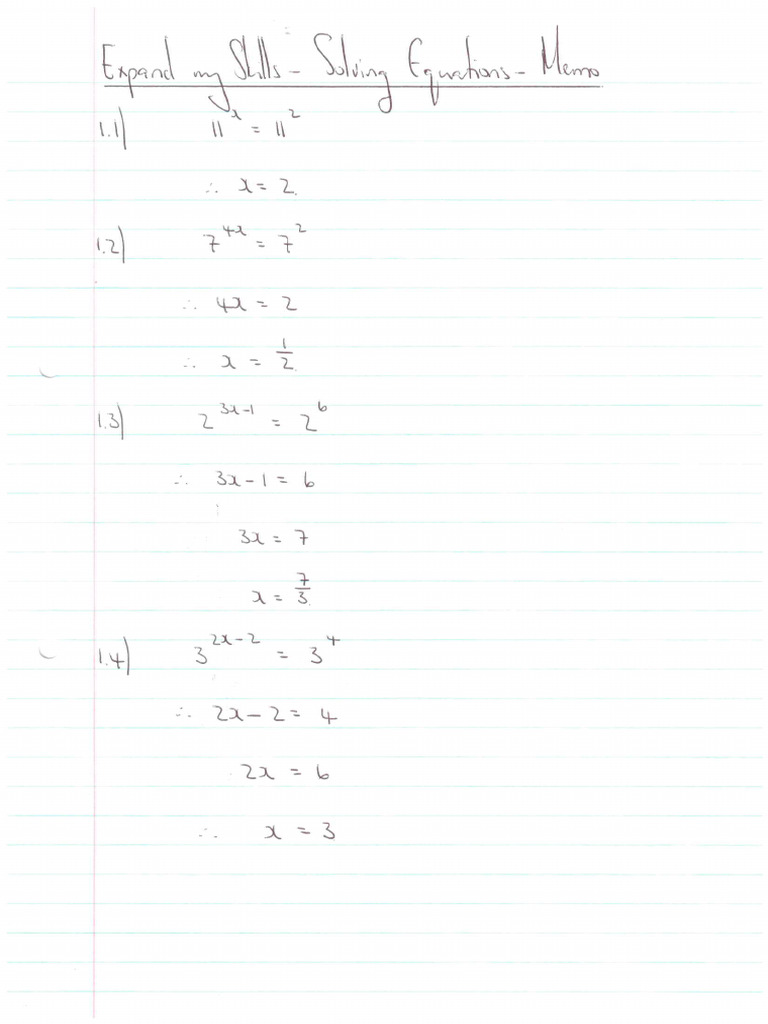 Expand my Skills - Solving Equations - Memo
1.1) 11^x = 11^2
∴ x = 2.
1.2) 7^4x = 7^2
∴ 4x = 2
∴ x = 1/2
1.3) 2^3x-1 = 2^6
∴ 3x-1 = 6
3x = 7
x = 7/3
1.4) 3^2x-2 = 3^4
∴ 2x-2 = 4
2x = 6
∴ x = 3